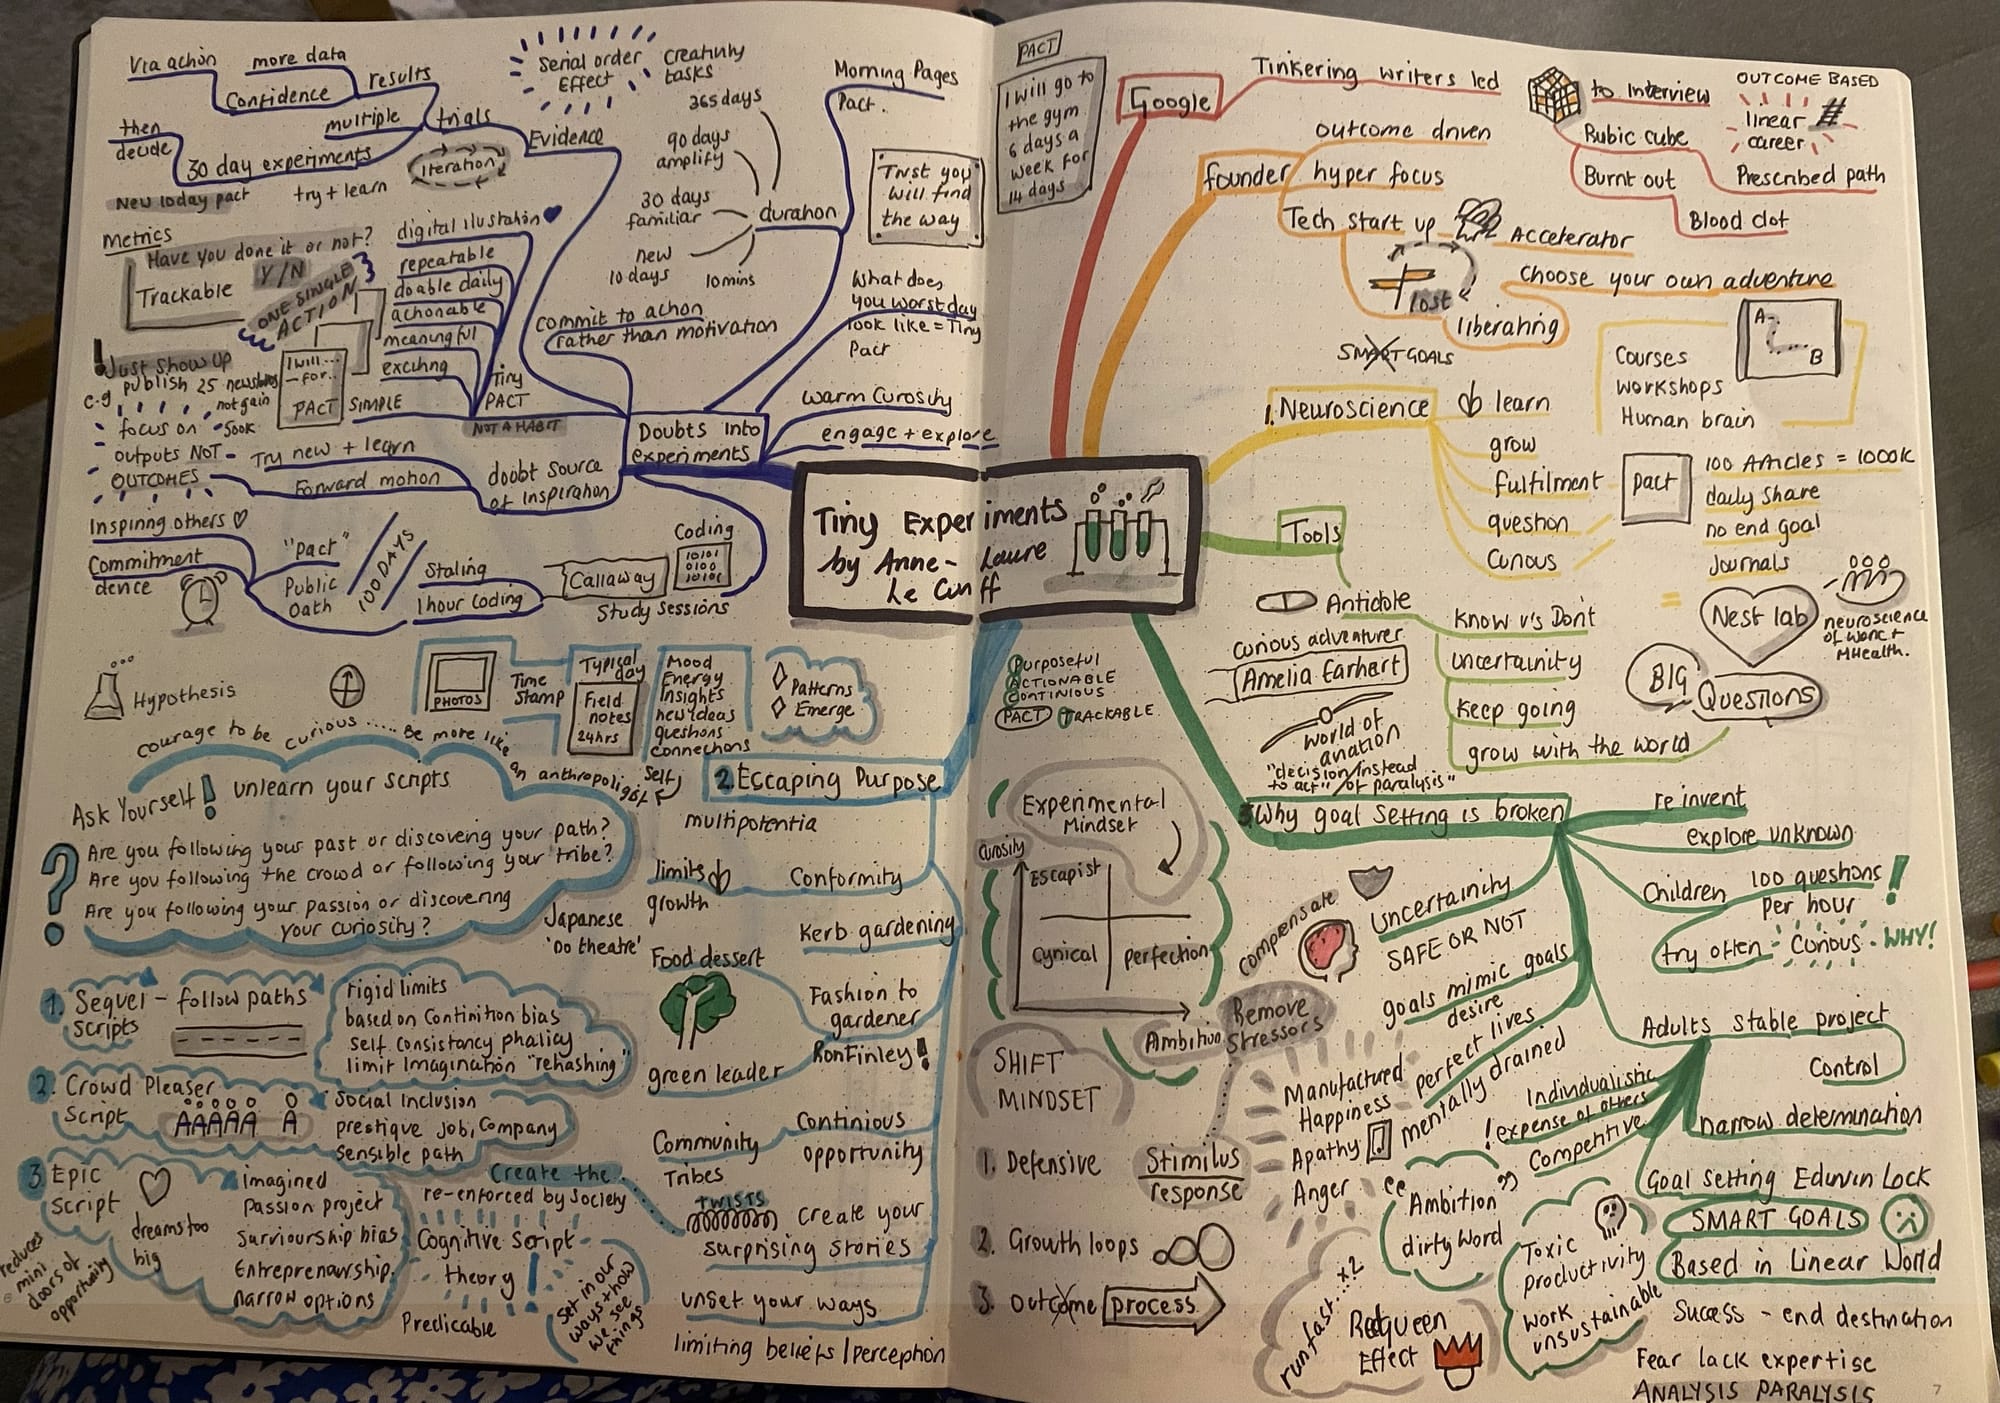 Via action
more data
results
Confidence
multiple
trials
then
decide
30 day experiments
Iteration
Evidence
New 10day pact
try + learn
Serial order
Effect
Creativity
tasks
365 days
90 days
amplify
30 days
familiar
duration
new
10 days
10mins
Morning Pages
Pact.
Trust you
will find
the way
What does
you worst day
look like = Tiny
Pact
Metrics
Have you done it or not?
Y/N
Trackable
ONE SINGLE
ACTION
digital ilustration
repeatable
doable daily
actionable
meaningful
exciting
Tiny
PACT
NOT A HABIT
commit to action
rather than motivation
! Just show up
e.g
publish 25 newsletters
not gain
500k
focus on
outputs NOT
OUTCOMES
I will...
-for..
PACT
SIMPLE
Try new + learn
Forward motion
doubt source
of inspiration
Doubts into
experiments
warm Curosity
engage + explore
Inspiring others
Commitment
dence
"pact"
Public
Oath
100 DAYS
Staling
1 hour Coding
Callaway
Study Sessions
Coding
10101
0100
10101
Tiny Experiments
by Anne-Laure
Le Cunff
PACT
I will go to
the gym
6 days a
week for
14 days
Google
Tinkering writers led
to Interview
Rubic cube
Burnt out
Blood clot
OUTCOME BASED
linear #
career
Prescribed path
founder
outcome driven
hyper focus
Tech start up
Accelerator
lost
Choose your own adventure
liberating
SMART GOALS
1. Neuroscience
learn
grow
fulfilment
question
Curious
Courses
workshops
Human brain
A
B
pact
100 Articles = 1000k
daily share
no end goal
Journals
= Nest lab
neuroscience
of work +
MHealth.
BIG
Questions
Tools
Antidote
Know v's Don't
uncertainity
Keep going
grow with the world
curious adventurer
Amelia Earhart
world of
aviation
"decision/instead
to act"/of paralysis"
Hypothesis
PHOTOS
Time
Stamp
Typical
day
Field
notes
24hrs
Mood
Energy
Insights
new ideas
questions
connections
Patterns
Emerge
courage to be curious..... Be more like
an anthropoligist
Self
2. Escaping Purpose
multipotentia
Ask Yourself!
unlearn your scripts
?
Are you following your past or discovering your path?
Are you following the crowd or following your tribe?
Are you following your passion or discovering
your curiosity?
Japanese
'Do theatre'
limits
growth
Conformity
Kerb gardening
Food dessert
Fashion to
gardener
Ron Finley!
green leader
1. Sequel - follow paths
Scripts
rigid limits
based on Continition bias
self consistancy phalicy
limit Imagination "rehashing"
2. Crowd Pleaser
Script
AAAAA A
Social Inclusion
prestique job, Company
Sensible path
3. Epic
Script
dreams too
big
reduces
mini
doors of
opportunity
imagined
Passion project
Surviourship bias
Entreprenawship
narrow options
Create the
re-enforced by Society
Cognitive Script
theory!
Predicable
Set in our
ways + how
we see
things
Community
Tribes
Continious
opportunity
TWISTS
Create your
surprising stories
unset your ways
limiting beliefs / perception
Purposeful
ACTIONABLE
CONTINIOUS
PACT
TRACKABLE
Experimental
Mindset
Curosity
Escapist
Cynical
perfection
Ambition
SHIFT
MINDSET
1. Defensive
Stimilus
response
2. Growth loops
3. outcome
process
3. Why goal setting is broken
re invent
explore unknown
Children
100 questions!
Per hour
try often - Curious - WHY!
compensate
Uncertainity
SAFE OR NOT
goals mimic goals
desire
Remove
Stressors
Manufactured
Happiness
perfect lives
mentally drained
Apathy
Anger
Adults stable project
Control
Narrow determination
Individualistic
! expense of others
Competitive
"Ambition"
dirty word
Goal setting Edwin Lock
SMART GOALS
Based in Linear World
Success - end destination
Fear lack expertise
ANALYSIS PARALYSIS
Toxic
productivity
work
unsustainable
run fast...x2
Redqueen
Effect
7